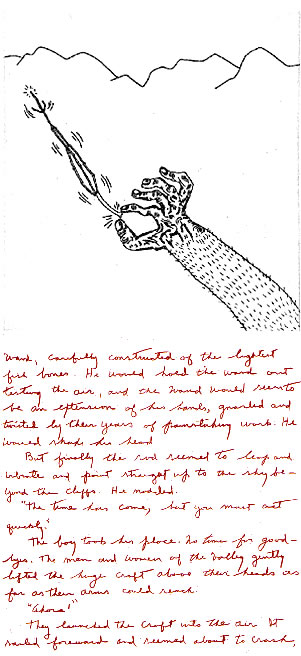 wand, carefully constructed of the lightest
fish bones. He would hold the wand out
testing the air, and the wand would seem to
be an extension of his hands, gnarled and
twisted by their years of painstaking work. He
would shake his head
But finally the rod seemed to leap and
vibrate and point straight up to the sky be-
yond the cliffs. He nodded.
"The time has come, but you must act
quickly"
The boy took his place. No time for good-
byes. The men and women of the Valley gently
lifted the huge craft above their heads as
far as their arms could reach.
"Ahora!"
They launched the craft into the air. It
sailed foreward and seemed about to crash,